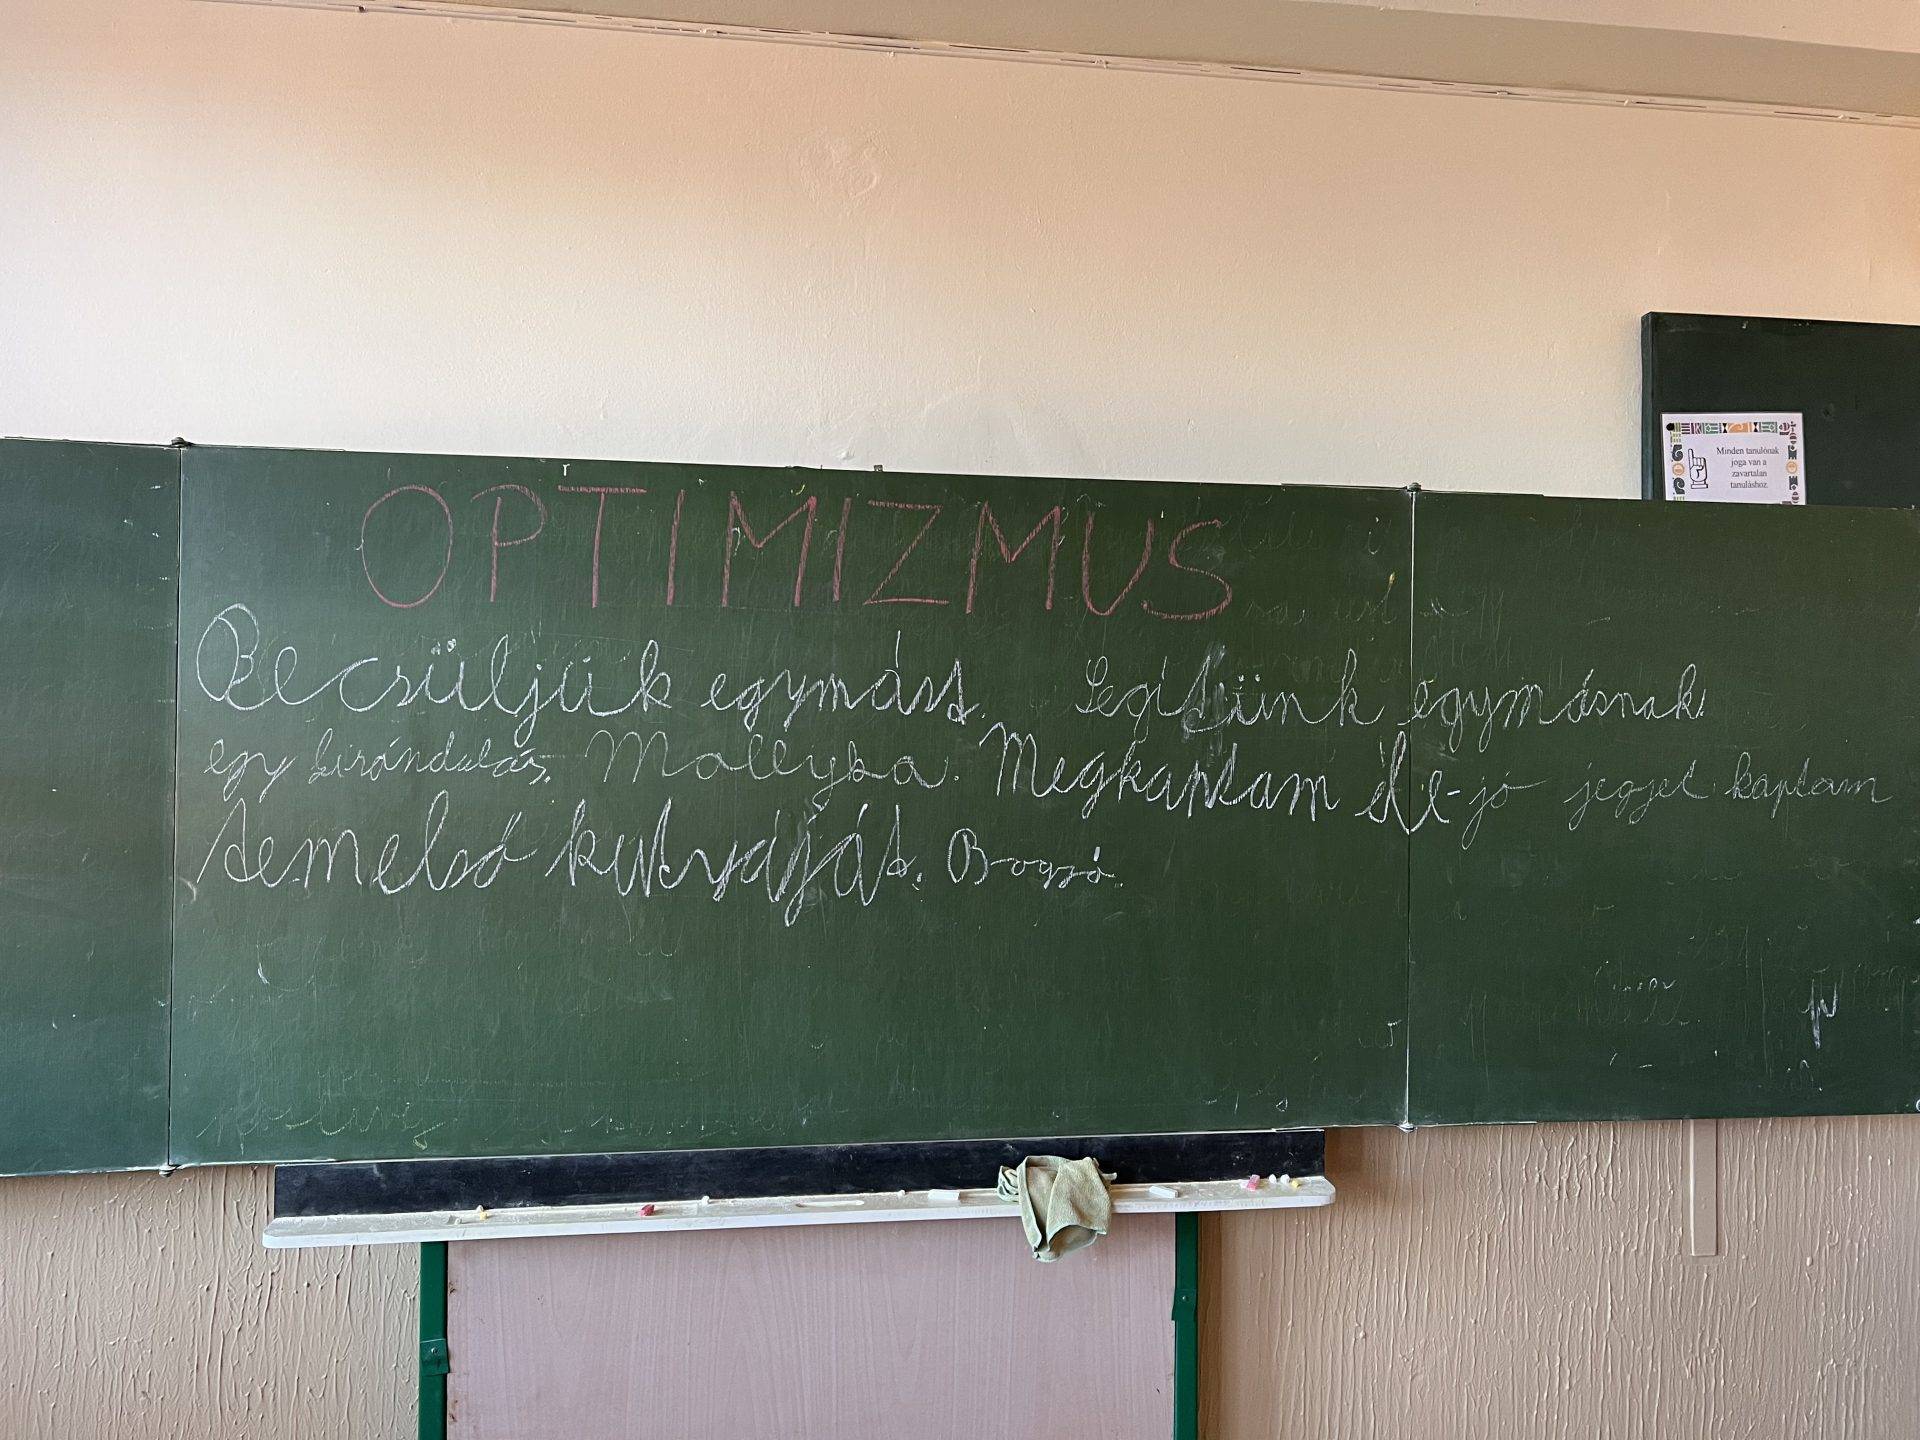 OPTIMIZMUS
Becsüljük egymást. Segítsünk egymásnak.
egy kirándulás. Mollyba. Megkaptam éle- jó jegyet kaptam
temelső kutyáját. Bogyó.
Minden tanulónak
joga van a
zavartalan
tanuláshoz.